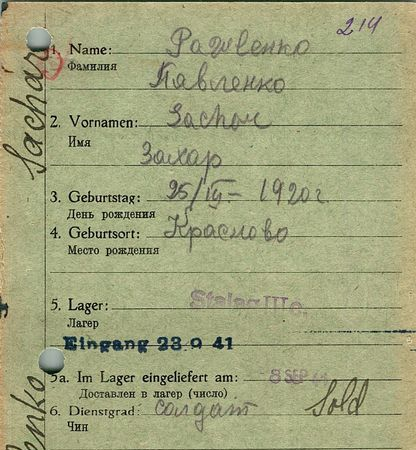 214
1. Name:
Фамилия
Павленко
2. Vornamen: Sachar
Имя
Захар
3. Geburtstag: 25/III – 1920 г
День рождения
4. Geburtsort: Краслово
Место рождения
5. Lager: Stalag III
Лагер
Eingang 23 9 41
5a. Im Lager eingeliefert am: 8 SEP
Доставлен в лагер (число)
6. Dienstgrad: солдат Sold
Чин
Sachar
enko